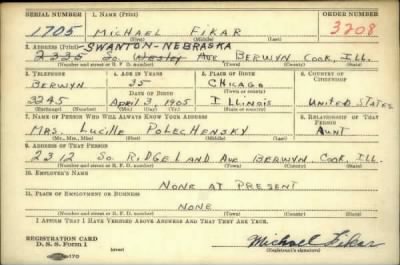 SERIAL NUMBER 1. NAME (Print) ORDER NUMBER
1705 MICHAEL FIKAR 3208
(First) (Middle) (Last)
2. ADDRESS (Print) SWANTON-NEBRASKA
2325 So. Wesley AVE BERWYN COOK, ILL.
(Number and street or R. F. D. number) (Town) (County) (State)
3. TELEPHONE 4. AGE IN YEARS 5. PLACE OF BIRTH 6. COUNTRY OF CITIZENSHIP
BERWYN 35 CHICAGO
DATE OF BIRTH (Town or county)
3245 April 3, 1905 ILLINOIS UNITED STATES
(Exchange) (Number) (Mo.) (Day) (Yr.) (State or country)
7. NAME OF PERSON WHO WILL ALWAYS KNOW YOUR ADDRESS 8. RELATIONSHIP OF THAT PERSON
MRS. LUCILLE POLECHENSKY AUNT
(Mr., Mrs., Miss) (First) (Middle) (Last)
9. ADDRESS OF THAT PERSON
2312 SO. RIDGELAND AVE BERWYN, COOK, ILL.
(Number and street or R. F. D. number) (Town) (County) (State)
10. EMPLOYER'S NAME
NONE AT PRESENT
11. PLACE OF EMPLOYMENT OR BUSINESS
NONE
(Number and street or R. F. D. number) (Town) (County) (State)
I AFFIRM THAT I HAVE VERIFIED ABOVE ANSWERS AND THAT THEY ARE TRUE.
REGISTRATION CARD
D. S. S. Form 1 (over) Michael Fikar
(Registrant's signature)